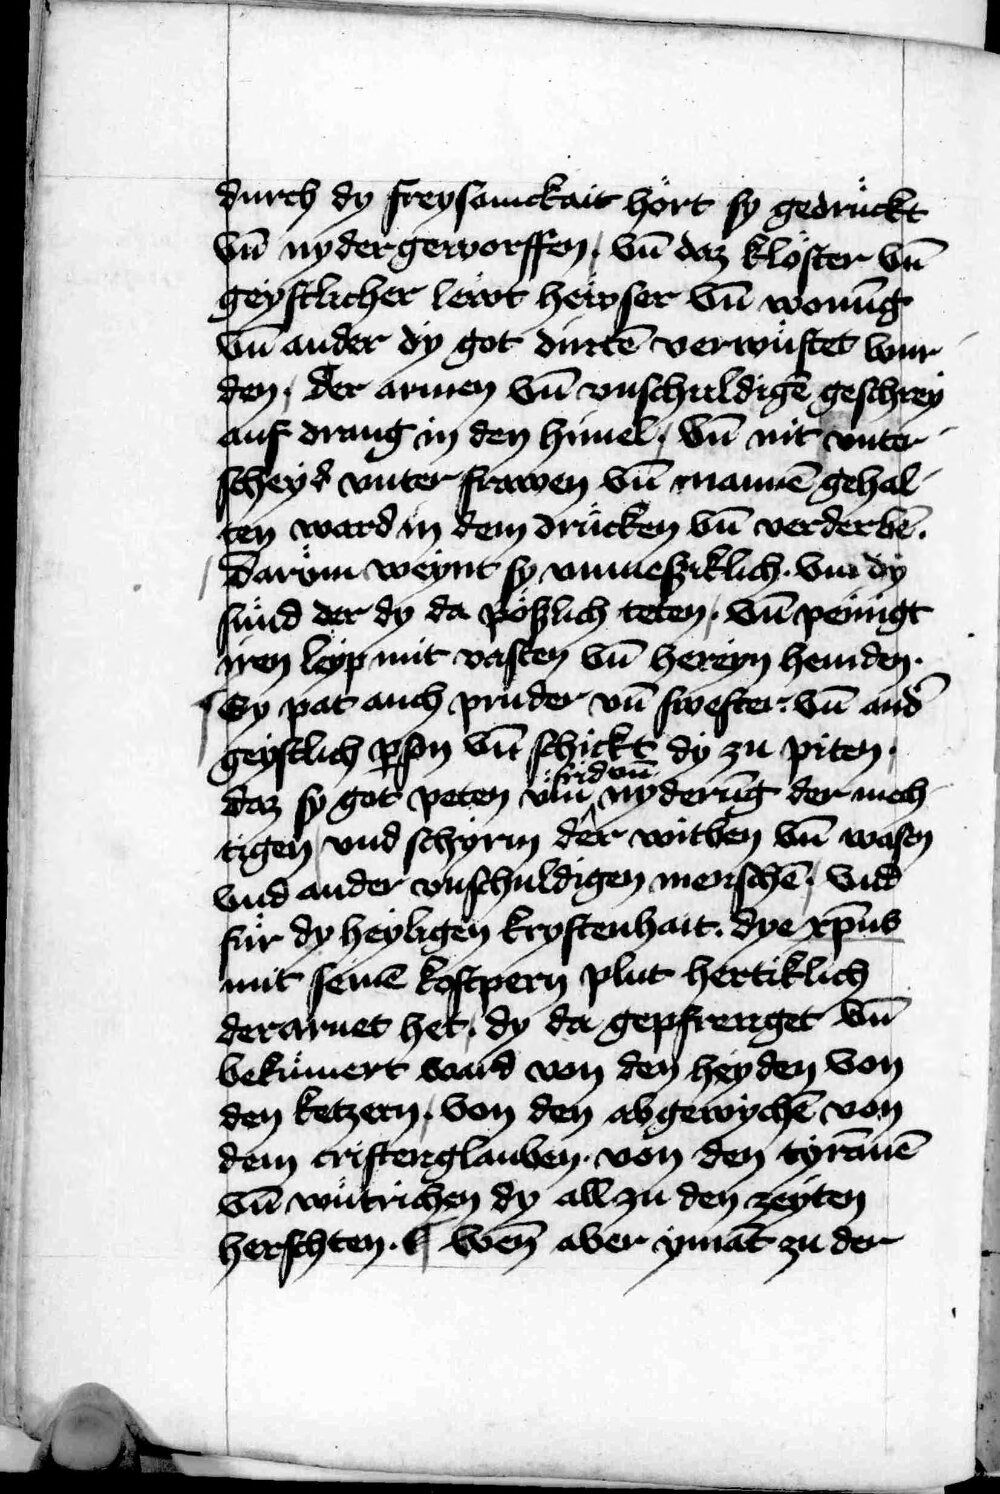 durch dy freysamckait hört sy gedrückt
vn̄ nydergeworffen / vn̄ daz klöster vn̄
geystlicher lewt hewser vn̄ wonūg
vn̄ ander dy got dintē verwüstet wur
den / der armen vn̄ vnschuldigē geschrey
auf drang in den himel / vn̄ nit vnter
scheyd vnter frawen vn̄ mannē gehal
ten ward in dem drücken vn̄ verderbē.
darüm weynt sy vnmeßiklich. vm dy
sünd der dy da pößlich teten / vn̄ peinigt
iren leyp mit vasten vn̄ hereyn hemden.
Sy pat auch pruder vn̄ swester. vn̄ and̄
geystlich ꝑson vn̄ schickt dy zu piten.
daz sy got peten vm̄ frid vn̄ nyderūg der mech
tigen / vnd schyrm der witben vn̄ wasen
vnd ander vnschuldigen menschē / vnd
für dy heyligen krystenhait. dye xp̄us
mit seinē kostpern plut hertiklich
derarnet het / dy da gepfrenget vn̄
bekümert ward von den heyden von
den ketzern / von den abgewychē von
dem cristenglauben. von den tyrānē
vn̄ wütrichen dy all zu den zeyten
herschten. wen̄ aber ymāt zu der